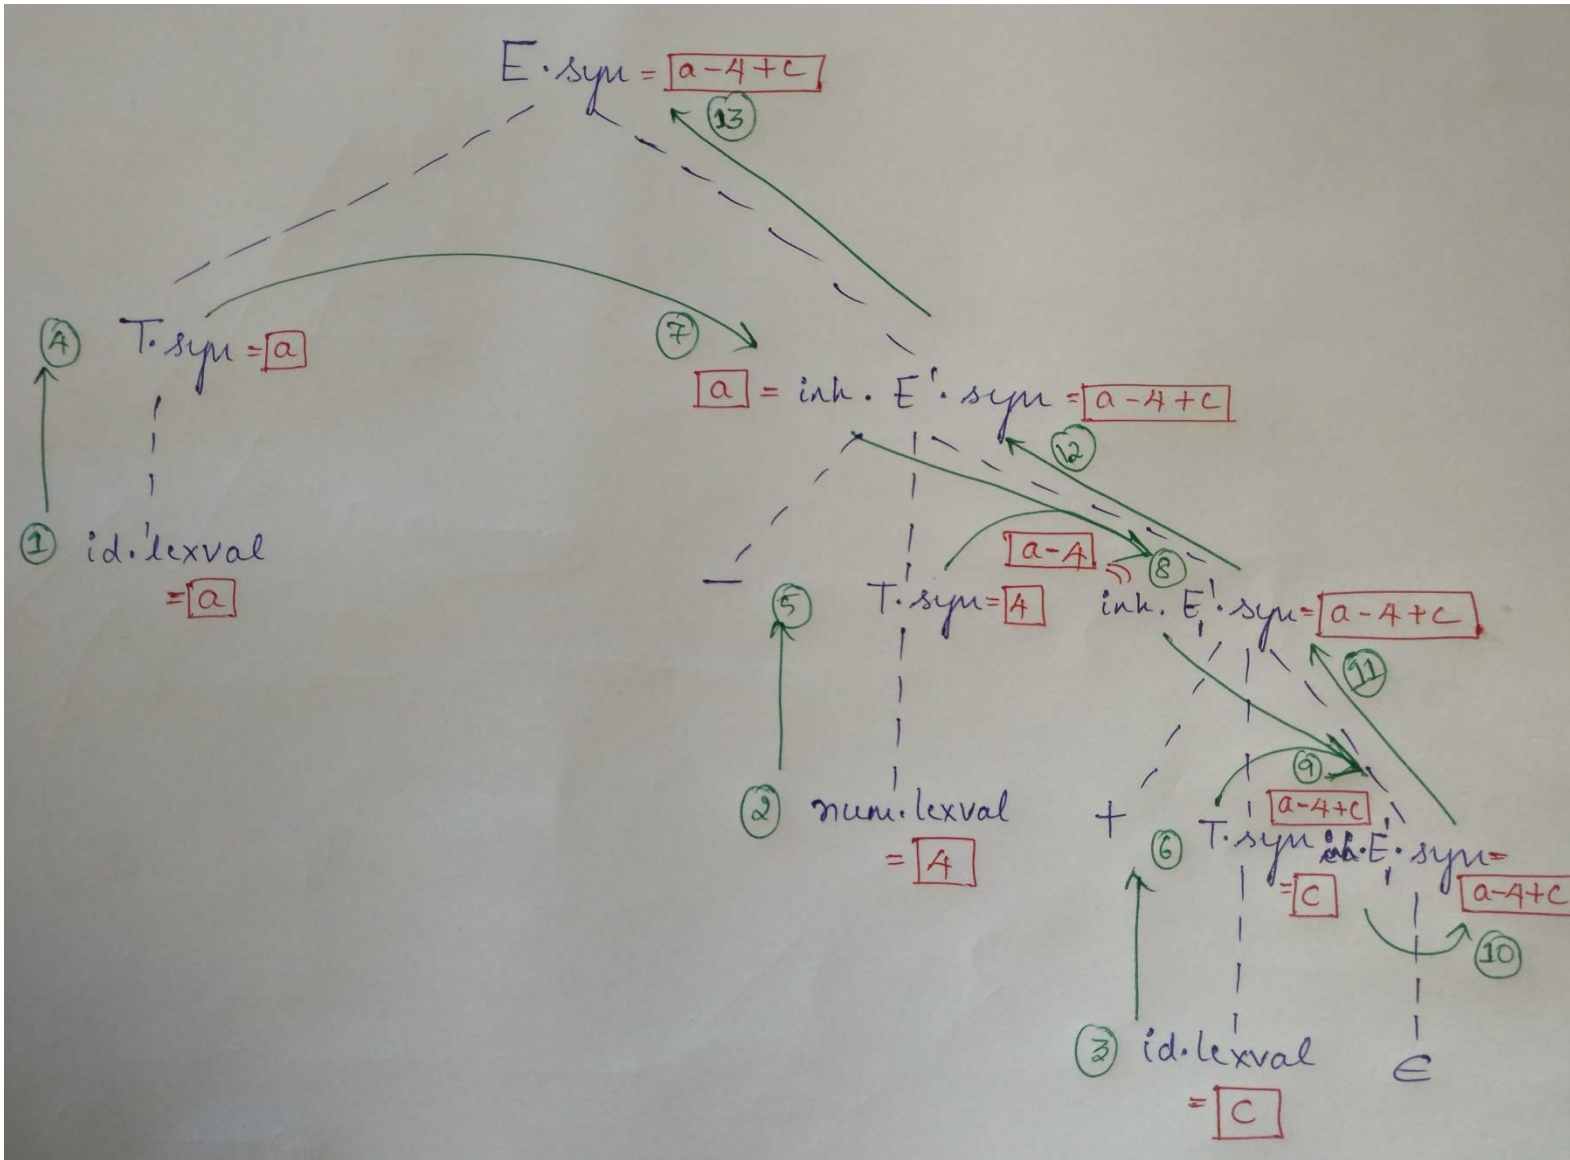 E.syn = a-4+c
13
4 T.syn = a
7
a = inh. E'. syn = a-4+c
12
1 id.lexval
= a
a-4
8
−
5 T.syn = 4
inh. E'. syn = a-4+c
11
9
2 num.lexval
= 4
a-4+c
+
6 T.syn inh.E'. syn =
= c
a-4+c
10
3 id.lexval
= c
ϵ